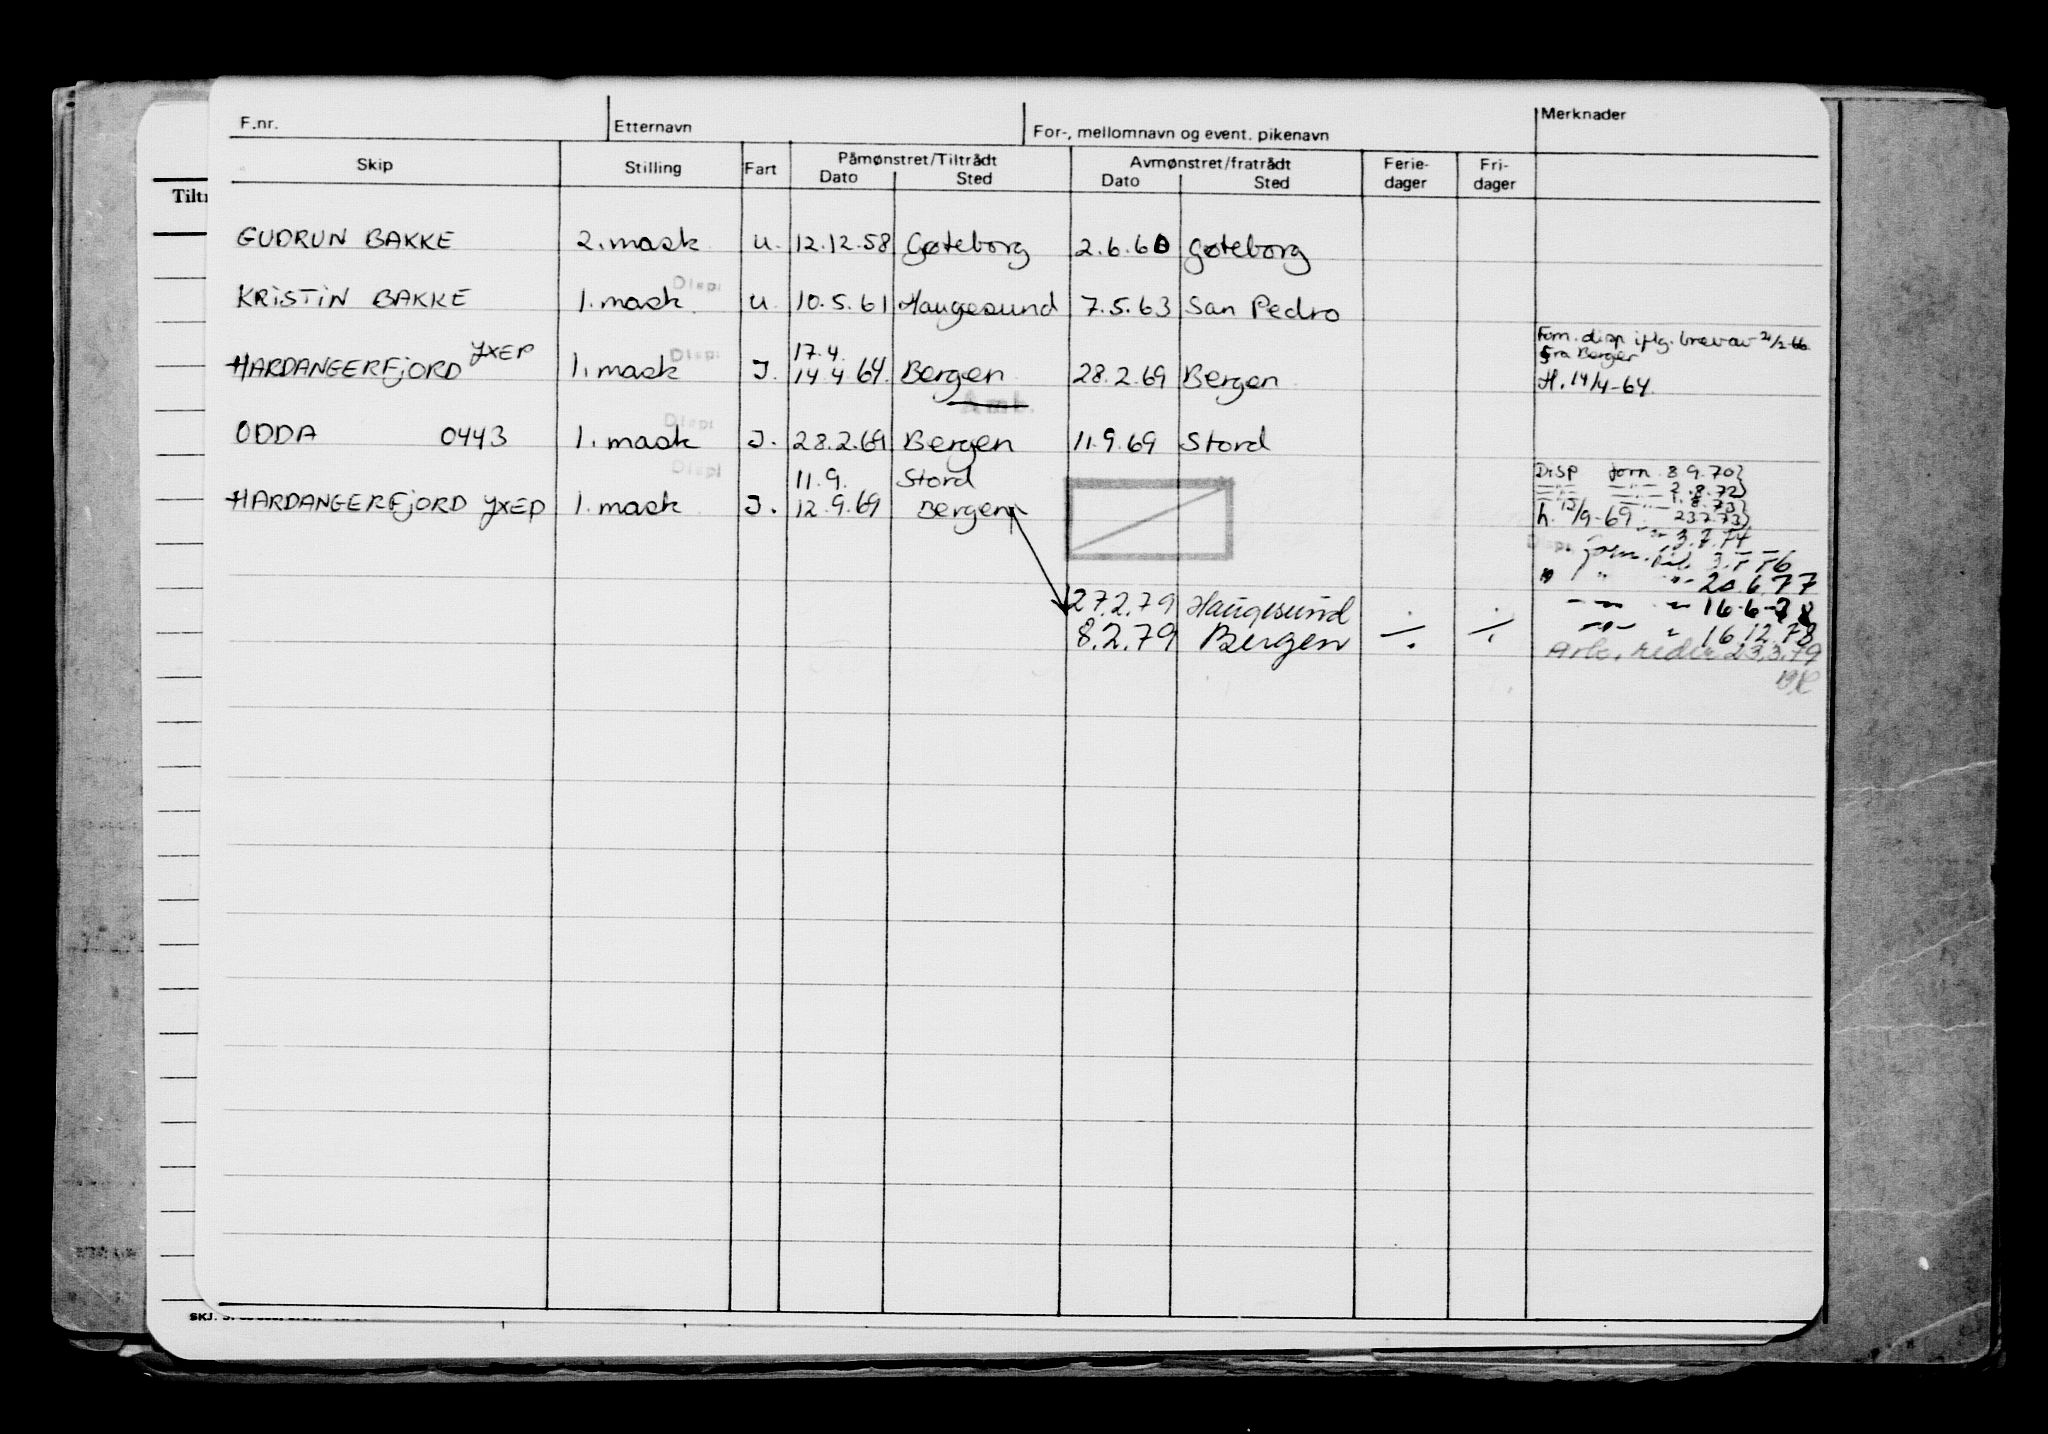 F.nr.
Etternavn
For-, mellomnavn og event. pikenavn
Merknader
Skip
Stilling
Fart
Påmønstret/Tiltrådt
Dato
Sted
Avmønstret/fratrådt
Dato
Sted
Ferie-
dager
Fri-
dager
Tiltr
GUDRUN BAKKE 2. mask u. 12.12.58 Gøteborg 2.6.60 Gøteborg
Disp:
KRISTIN BAKKE 1. mask u. 10.5.61 Haugesund 7.5.63 San Pedro
Disp:
17.4.
HARDANGERFJORD JXEP 1. mask J. 14.4.64. Bergen 28.2.69 Bergen
Forn. disp iflg. brev av 2/2-66
Fra Berger
H. 14/4-64.
Amb.
Disp:
ODDA 0443 1. mask J. 28.2.69 Bergen 11.9.69 Stord
Disp:
11.9. Stord
HARDANGERFJORD JXEP 1. mask J. 12.9.69 Bergen
DISP forn. 8 9.70
—"— —"— 2.8.72
—"— 1.8.73
h. 12/9-69 23.7.73
—"— 3.7.74
Disp. forn.
" " —"— 20.6.77
27.2.79 Haugesund
—"— " 16.6.78
8.2.79 Bergen ÷ ÷
—"— " 16.12.78
Arb. reder 23.3.79